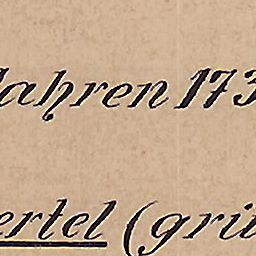 ahren 173
ertel (grü